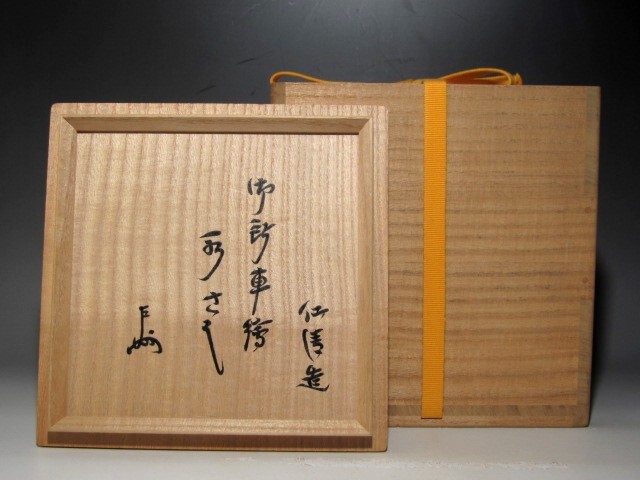 仙清造
御所車繪
水さし